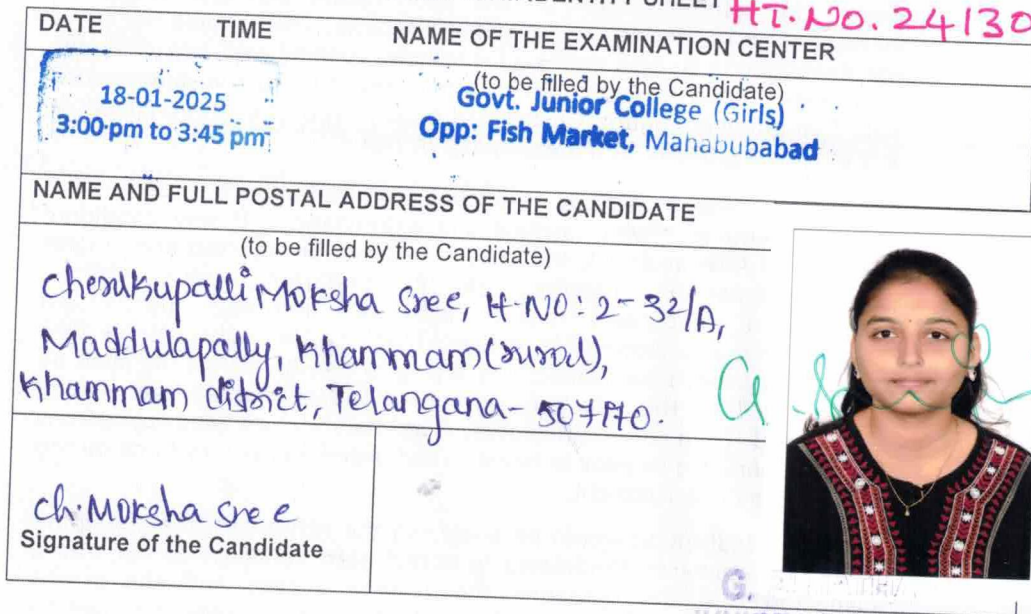 IDENTITY SHEET
HT.NO. 24130
DATE TIME NAME OF THE EXAMINATION CENTER
(to be filled by the Candidate)
18-01-2025
3:00 pm to 3:45 pm
Govt. Junior College (Girls)
Opp: Fish Market, Mahabubabad
NAME AND FULL POSTAL ADDRESS OF THE CANDIDATE
(to be filled by the Candidate)
Cherukupalli Moksha Sree, H-NO: 2-32/A,
Maddulapally, Khammam (rural),
Khammam district, Telangana- 507170.
Ch. Moksha Sree
Signature of the Candidate
G.